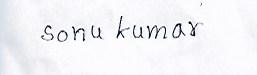 sonu kumar